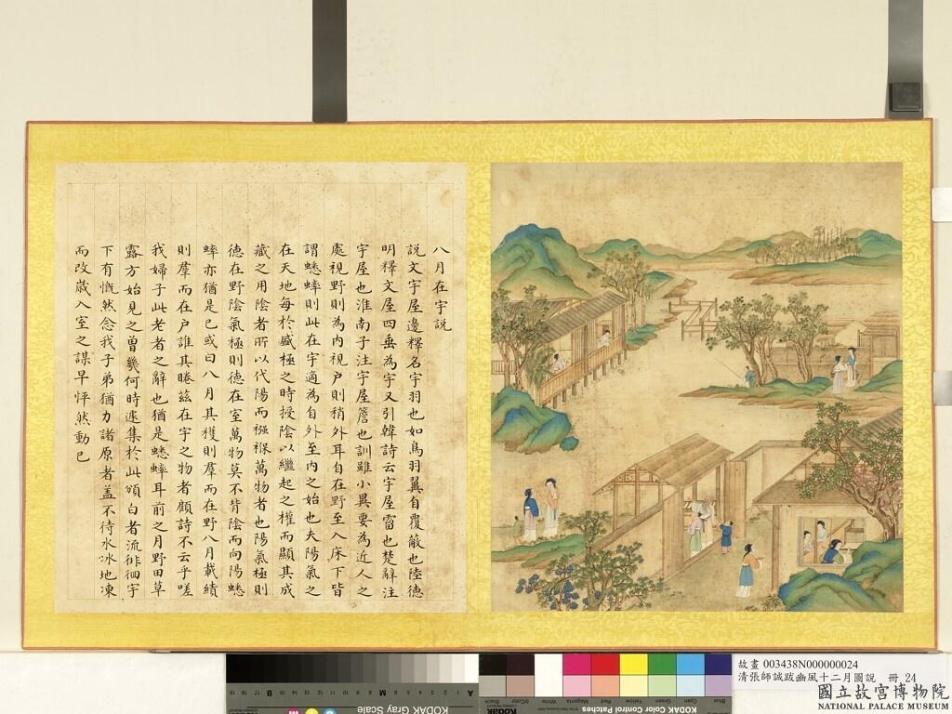 八月在宇說
說文宇屋邊釋名宇羽也如鳥羽翼自覆蔽也陸德
明釋文屋四垂為宇又引韓詩云宇屋霤也楚辭注
宇屋也淮南子注宇屋簷也訓雖小異要為近人之
處視野則為內視戶則稍外耳自在野至入床下皆
謂蟋蟀則此在宇適為自外至內之始也夫陽氣之
在天地每於盛極之時授陰以繼起之權而顯其成
藏之用陰者所以代陽而襁褓萬物者也陽氣極則
德在野陰氣極則德在室萬物莫不背陰而向陽蟋
蟀亦猶是已或曰八月其穫則羣而在野八月載績
則羣而在戶誰其睠茲在宇之物者顧詩不云乎嗟
我婦子此老者之辭也猶是蟋蟀耳前之月野田草
露方始見之曾幾何時遽集於此頒白者流徘徊宇
下有慨然念我子弟猶力諸原者蓋不待水冰地凍
而改歲入室之謀早怦然動已
故畫 003438N000000024
清張師誠跋豳風十二月圖說 冊 24
國立故宮博物院
NATIONAL PALACE MUSEUM
KODAK Gray Scale
KODAK Color Control Patches